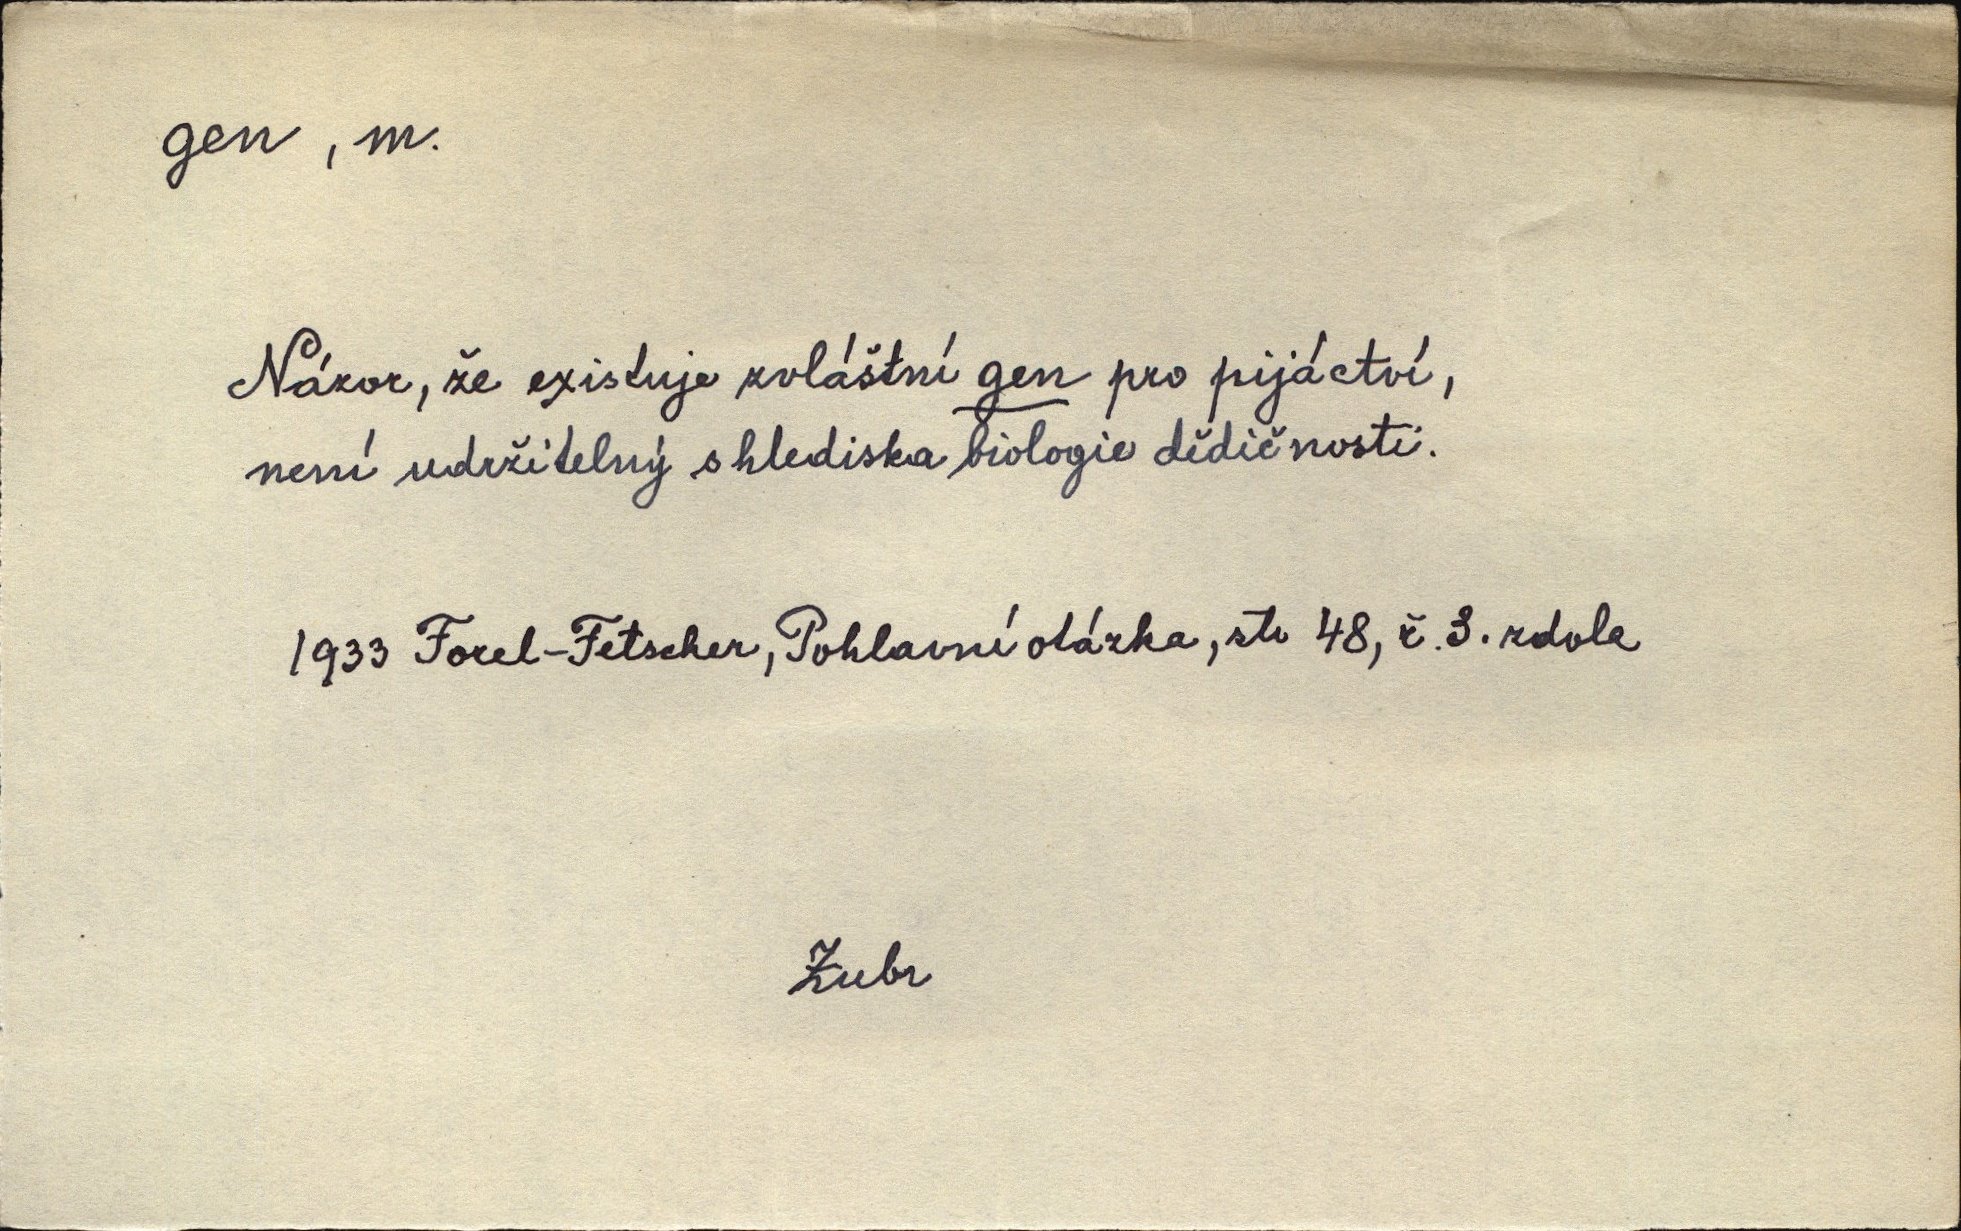 gen, m.
Názor, že existuje zvláštní gen pro pijáctví,
není udržitelný s hlediska biologie dědičnosti.
1933 Forel-Fetscher, Pohlavní otázka, str 48, ř. 3. zdola
Zubr